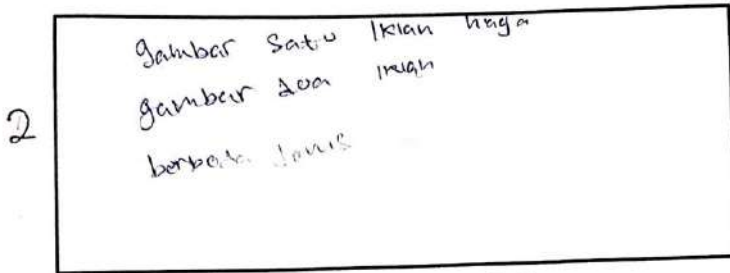 2
gambar satu Iklan haga
gambar doa iklan
berbeda Jenis